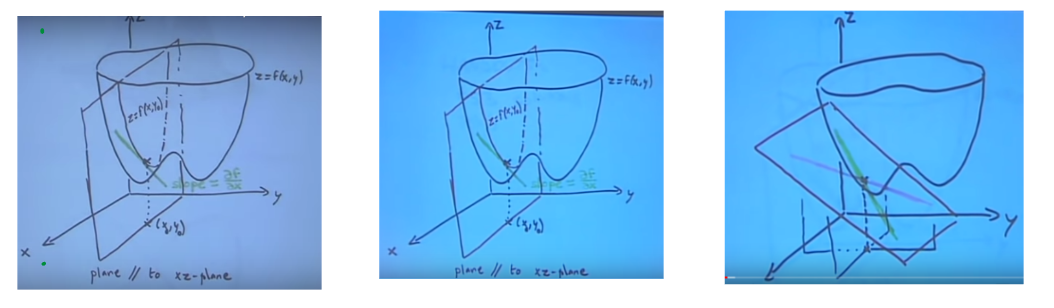 z
z=f(x,y)
z=f(x,y₀)
slope = ∂f/∂x
y
(x₀,y₀)
x
plane // to xz-plane
z
z=f(x,y)
z=f(x,y₀)
slope = ∂f/∂x
y
(x₀,y₀)
x
plane // to xz-plane
z
y
x